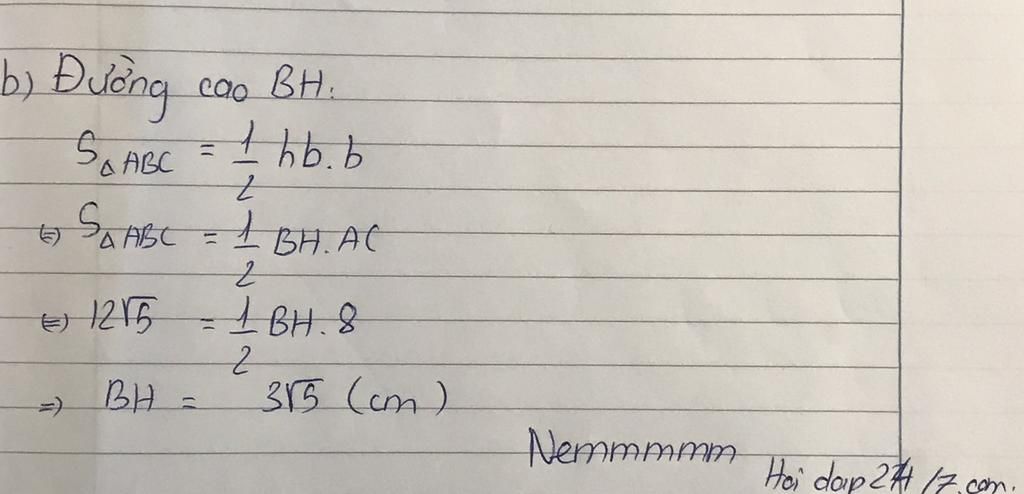 b) Đường cao BH:
S△ABC = 1/2 hb.b
⇔ S△ABC = 1/2 BH.AC
⇔ 12√5 = 1/2 BH.8
⇒ BH = 3√5 (cm)
Nemmmmm
Hoi dap 247 /7.com.